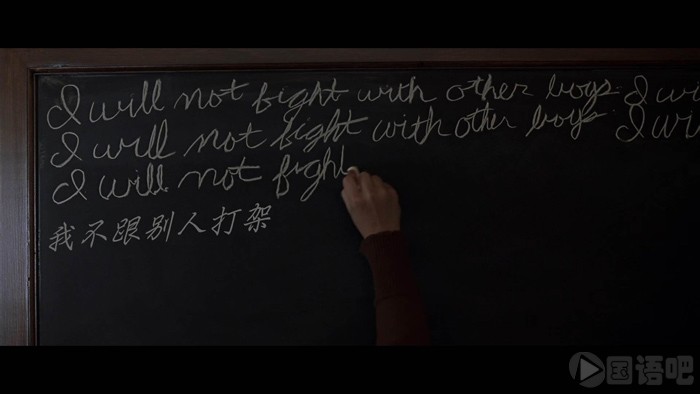 I will not fight with other boys. I wi
I will not fight with other boys. I wi
I will not fight
我不跟别人打架
国语吧